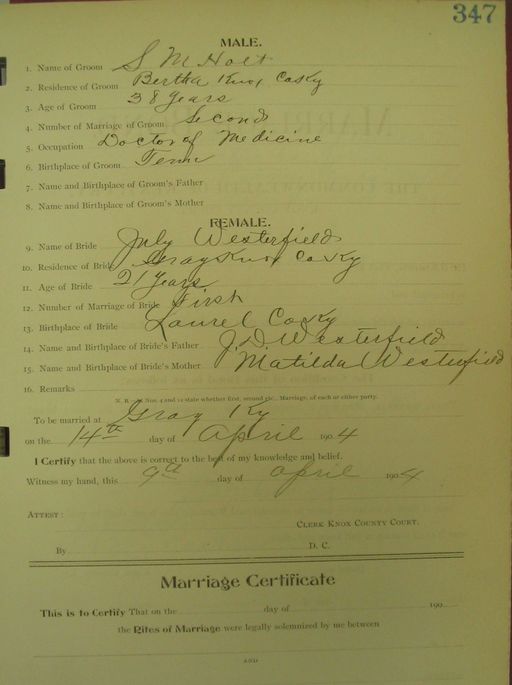 347
MALE.
1. Name of Groom S M Holt
2. Residence of Groom Bertha Knox Co Ky
3. Age of Groom 38 Years
4. Number of Marriage of Groom Second
5. Occupation Doctor of Medicine
6. Birthplace of Groom Tenn
7. Name and Birthplace of Groom's Father
8. Name and Birthplace of Groom's Mother
FEMALE.
9. Name of Bride July Westerfield
10. Residence of Bride Gray Knox Co Ky
11. Age of Bride 21 Years
12. Number of Marriage of Bride First
13. Birthplace of Bride Laurel Co Ky
14. Name and Birthplace of Bride's Father J. D. Westerfield
15. Name and Birthplace of Bride's Mother Matilda Westerfield
16. Remarks
N. B. Nos. 4 and 12 state whether first, second etc., Marriage, of each or either party.
To be married at Gray Ky
on the 14th day of April 1904
I Certify that the above is correct to the best of my knowledge and belief.
Witness my hand, this 9th day of April 1904
ATTEST:
CLERK KNOX COUNTY COURT.
By D. C.
Marriage Certificate
This is to Certify That on the day of 190
the Rites of Marriage were legally solemnized by me between
AND